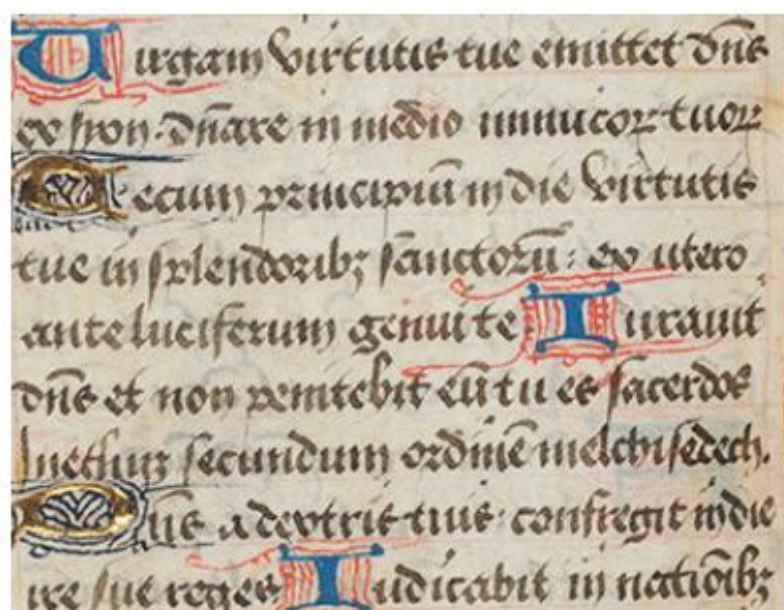 Uirgam virtutis tue emittet dn̄s
ex syon. dn̄are in medio inimicoꝝ tuoꝝ
Tecum principiū in die virtutis
tue in splendoribꝫ sanctorū: ex utero
ante luciferum genui te Iurauit
dn̄s et non penitebit eū tu es sacerdos
secundum ordinē melchisedech.
Dn̄s a dextris tuis. confregit in die
ire sue reges Iudicabit in nationibꝫ